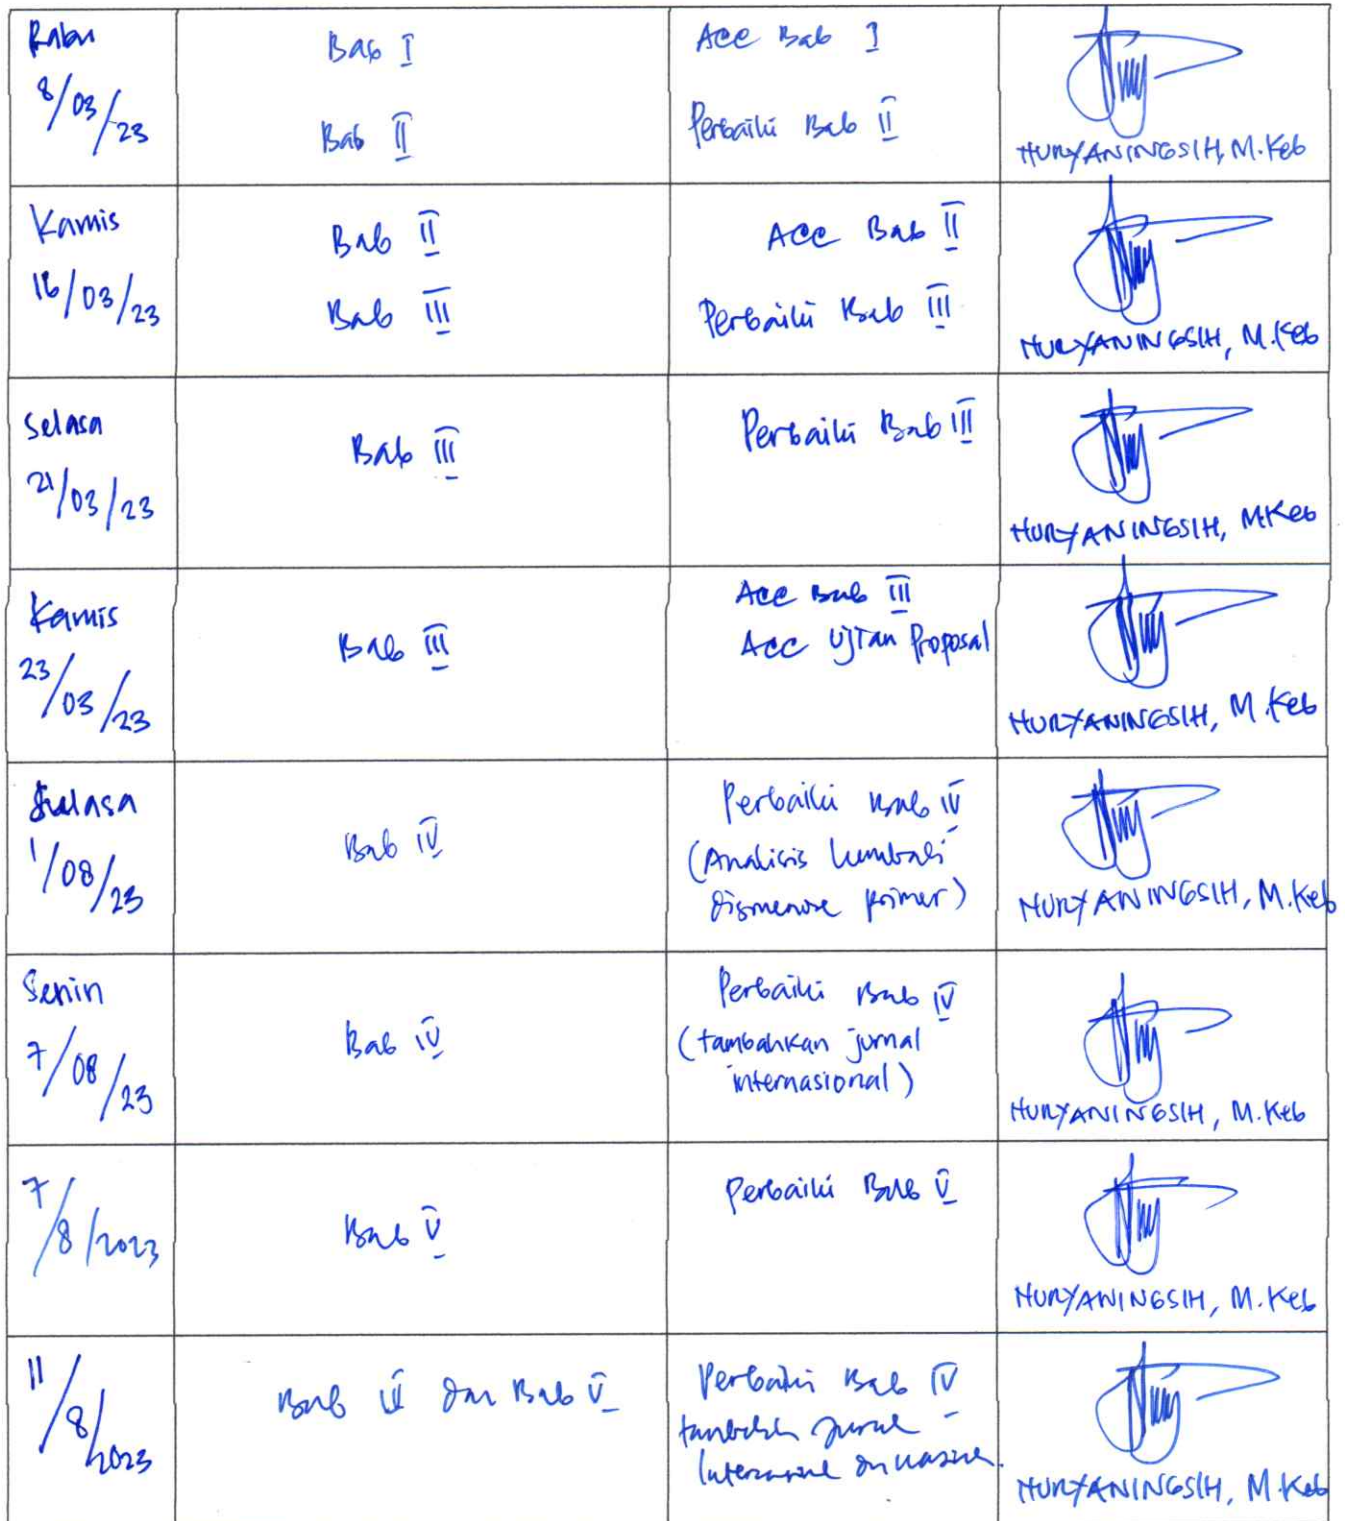 Rabu
8/03/23
Bab I
Bab II
Acc Bab I
Perbaiki Bab II
NURYANINGSIH, M.Keb
Kamis
16/03/23
Bab II
Bab III
Acc Bab II
Perbaiki Bab III
NURYANINGSIH, M.Keb
Selasa
21/03/23
Bab III
Perbaiki Bab III
NURYANINGSIH, M.Keb
Kamis
23/03/23
Bab III
Acc Bab III
Acc Ujian Proposal
NURYANINGSIH, M.Keb
Selasa
1/08/23
Bab IV
Perbaiki Bab IV
(Analisis kembali
dismenore primer)
NURYANINGSIH, M.Keb
Senin
7/08/23
Bab IV
Perbaiki Bab IV
(tambahkan jurnal
internasional)
NURYANINGSIH, M.Keb
7/8/2023
Bab V
Perbaiki Bab V
NURYANINGSIH, M.Keb
11/8/2023
Bab dan Bab V
Perbaiki Bab IV
jurnal
NURYANINGSIH, M.Keb